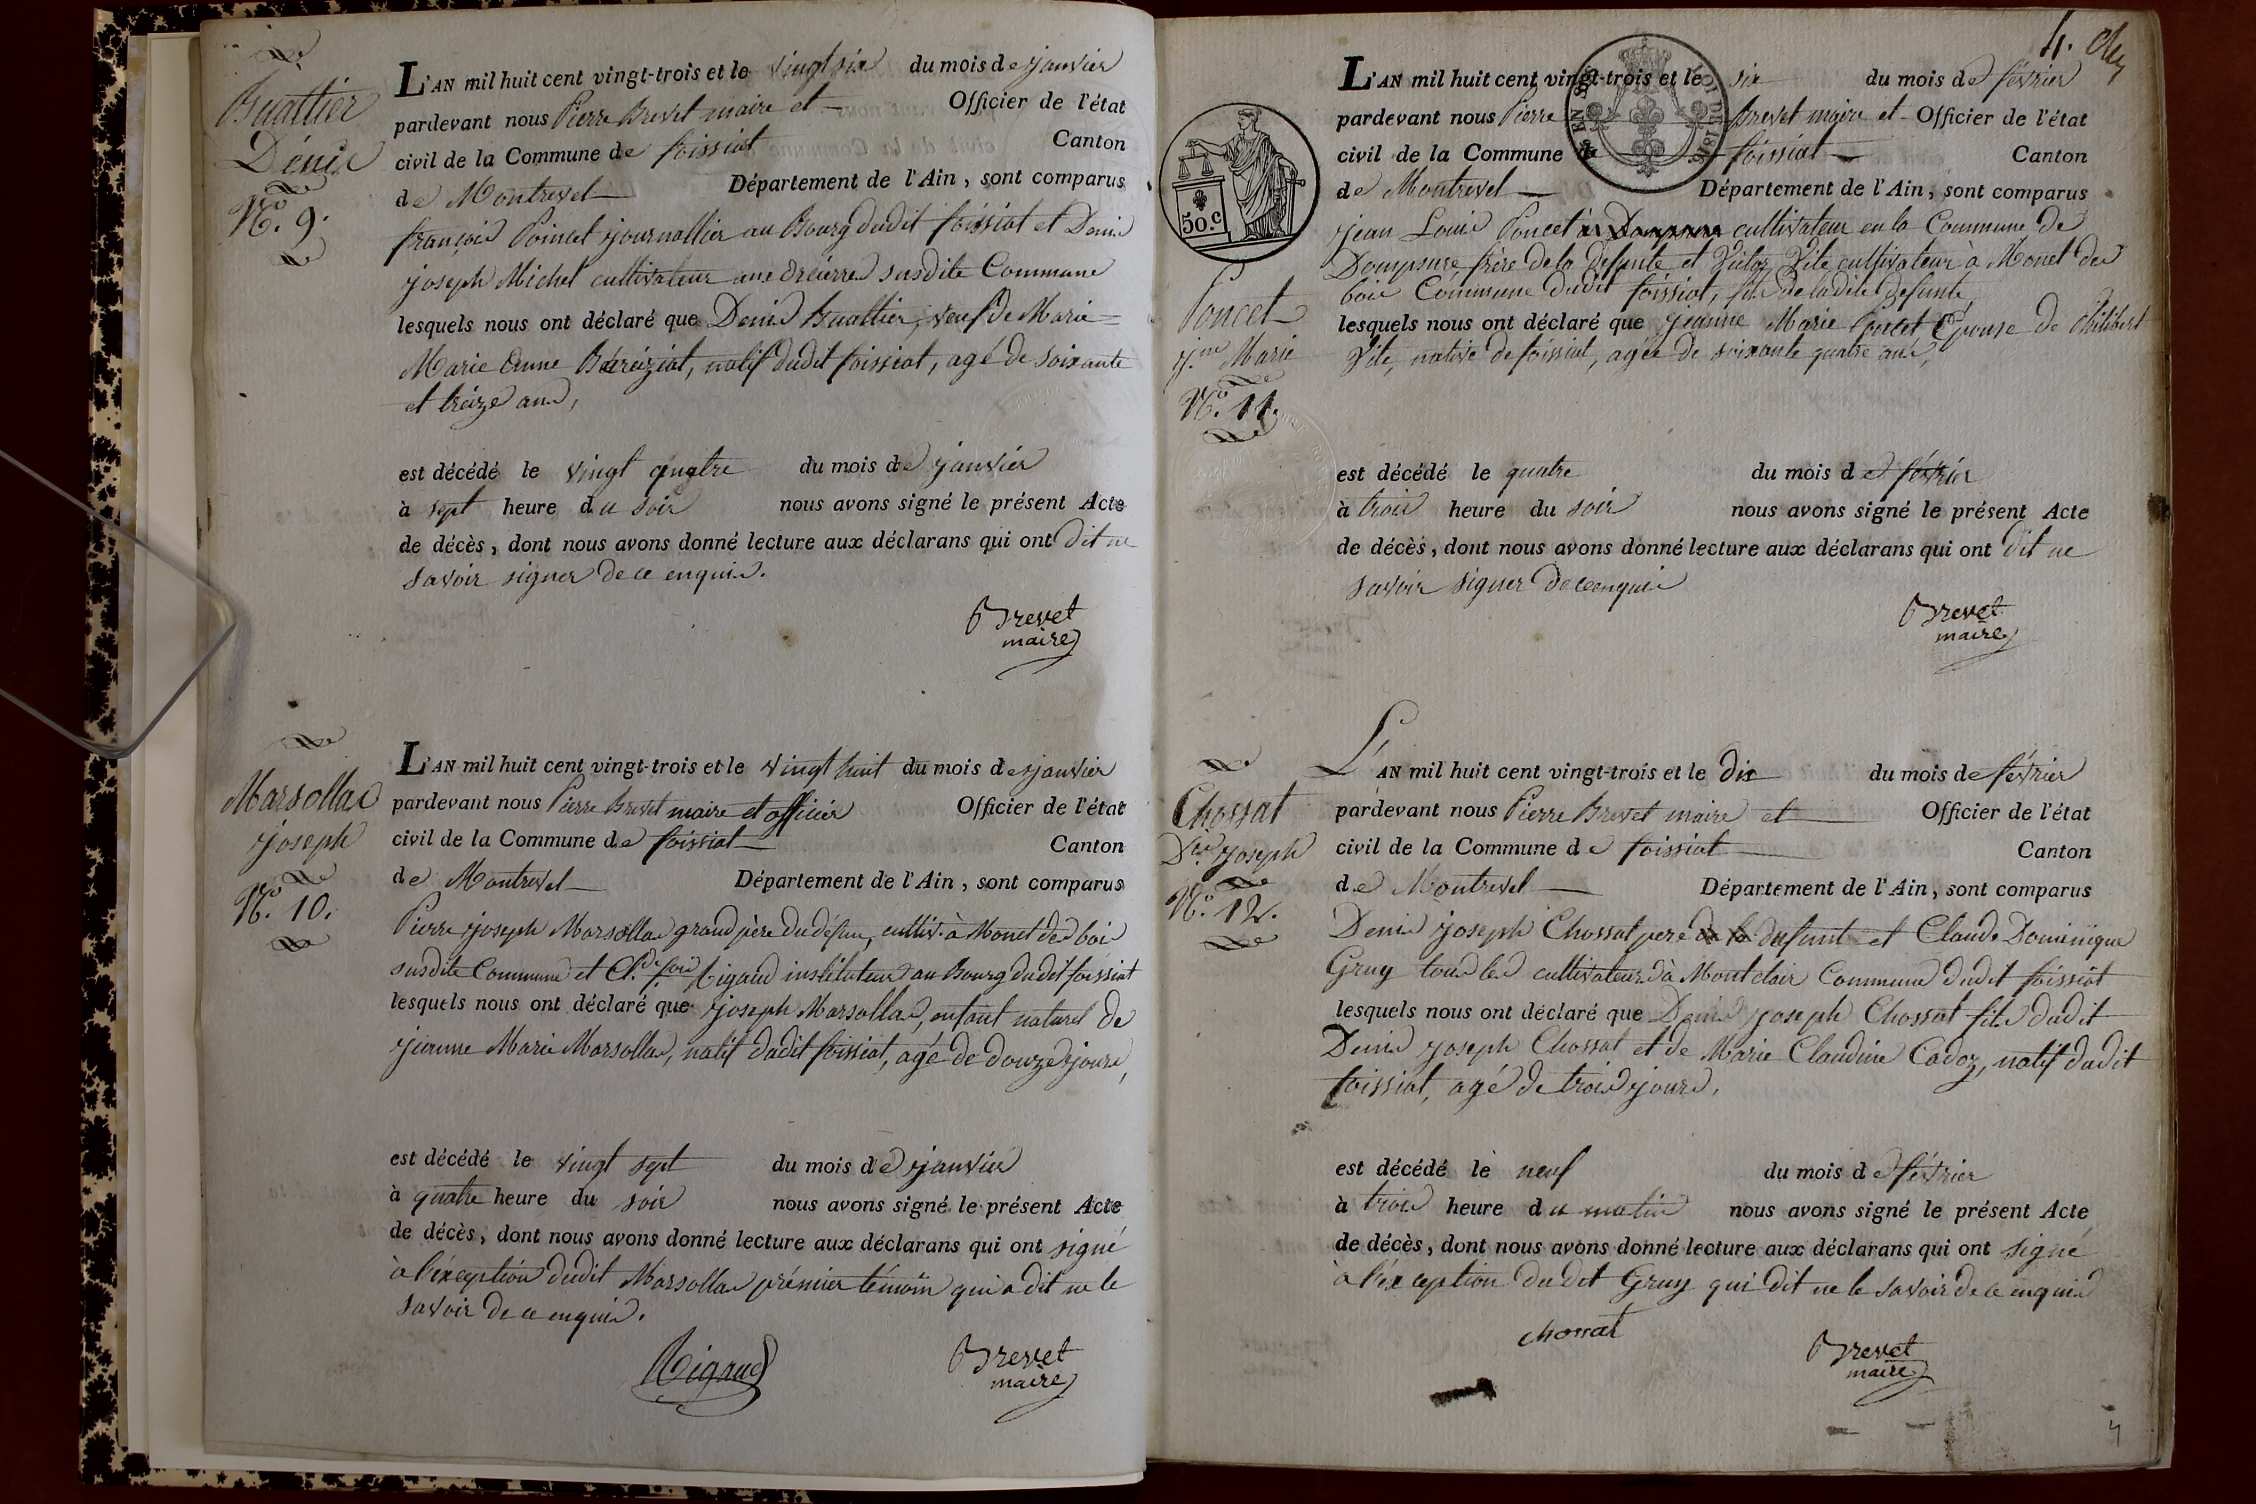 Buattier
Dénis
N.o 9.
L'AN mil huit cent vingt-trois et le vingt six du mois de janvier
pardevant nous Pierre Brevet maire et Officier de l'état
civil de la Commune de foissiat Canton
de Montrevel Département de l'Ain, sont comparus
françois Poincet journallier au Bourg dudit foissiat et Denis
joseph Michel cultivateur aux susdite Commune
lesquels nous ont déclaré que Denis Buattier, veuf de Marie
Marie Anne Béréziat, natif dudit foissiat, agé de soixante
et treize ans,
est décédé le vingt quatre du mois de janvier
à sept heure du soir nous avons signé le présent Acte
de décès, dont nous avons donné lecture aux déclarans qui ont dit ne
savoir signer de ce enquis.
Brevet
maire
Marsollas
joseph
N.o 10.
L'AN mil huit cent vingt-trois et le vingt huit du mois de janvier
pardevant nous Pierre Brevet maire et officier Officier de l'état
civil de la Commune de foissiat Canton
de Montrevel Département de l'Ain, sont comparus
Pierre joseph Marsollas grand père du défunt, cultiv. à Monet des bois
susdite Commune et Cl.de fois Rigaud instituteur au Bourg dudit foissiat
lesquels nous ont déclaré que joseph Marsollas, enfant naturel de
jeanne Marie Marsollas, natif dudit foissiat, agé de douze jours,
est décédé le vingt sept du mois de janvier
à quatre heure du soir nous avons signé le présent Acte
de décès, dont nous avons donné lecture aux déclarans qui ont signé
à l'éxception dudit Marsollas prémier témoin qui a dit ne le
savoir de ce enquis.
Rigaud
Brevet
maire
4.
50. C
Poncet
j.ne Marie
N.o 11.
L'AN mil huit cent vingt-trois et le six du mois de février
pardevant nous Pierre Brevet maire et Officier de l'état
civil de la Commune de foissiat Canton
de Montrevel Département de l'Ain, sont comparus
jean Louis Poncet cultivateur en la Commune de
Dompsure frère de la défunte et Victor Vite cultivateur à Monet des
bois Commune dudit foissiat, fils de ladite défunte
lesquels nous ont déclaré que jeanne Marie Poncet Epouse de Philibert
Vite, native de foissiat, agée de soixante quatre ans,
est décédé le quatre du mois de février
à trois heure du soir nous avons signé le présent Acte
de décès, dont nous avons donné lecture aux déclarans qui ont dit ne
savoir signer de ce enquis
Brevet
maire
Chossat
D.is joseph
N.o 12.
L'AN mil huit cent vingt-trois et le dix du mois de février
pardevant nous Pierre Brevet maire et Officier de l'état
civil de la Commune de foissiat Canton
de Montrevel Département de l'Ain, sont comparus
Denis joseph Chossat pere du defunt et Claude Dominique
Gruy tous les cultivateurs à Montclair Commune dudit foissiat
lesquels nous ont déclaré que Denis joseph Chossat fils dudit
Denis joseph Chossat et de Marie Claudine Cadoz, natif dudit
foissiat, agé de trois jours,
est décédé le neuf du mois de février
à trois heure du matin nous avons signé le présent Acte
de décès, dont nous avons donné lecture aux déclarans qui ont signé
à l'éxception dudit Gruy qui dit ne le savoir de ce enquis
chossat
Brevet
maire
4